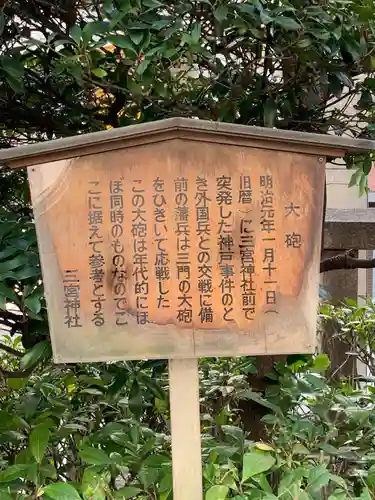 大砲
明治元年一月十一日（
旧暦）に三宮神社前で
突発した神戸事件のと
き外国兵との交戦に備
前の藩兵は三門の大砲
をひいて応戦した
この大砲は年代的にほ
ぼ同時のものなのでこ
こに据えて参考とする
三宮神社